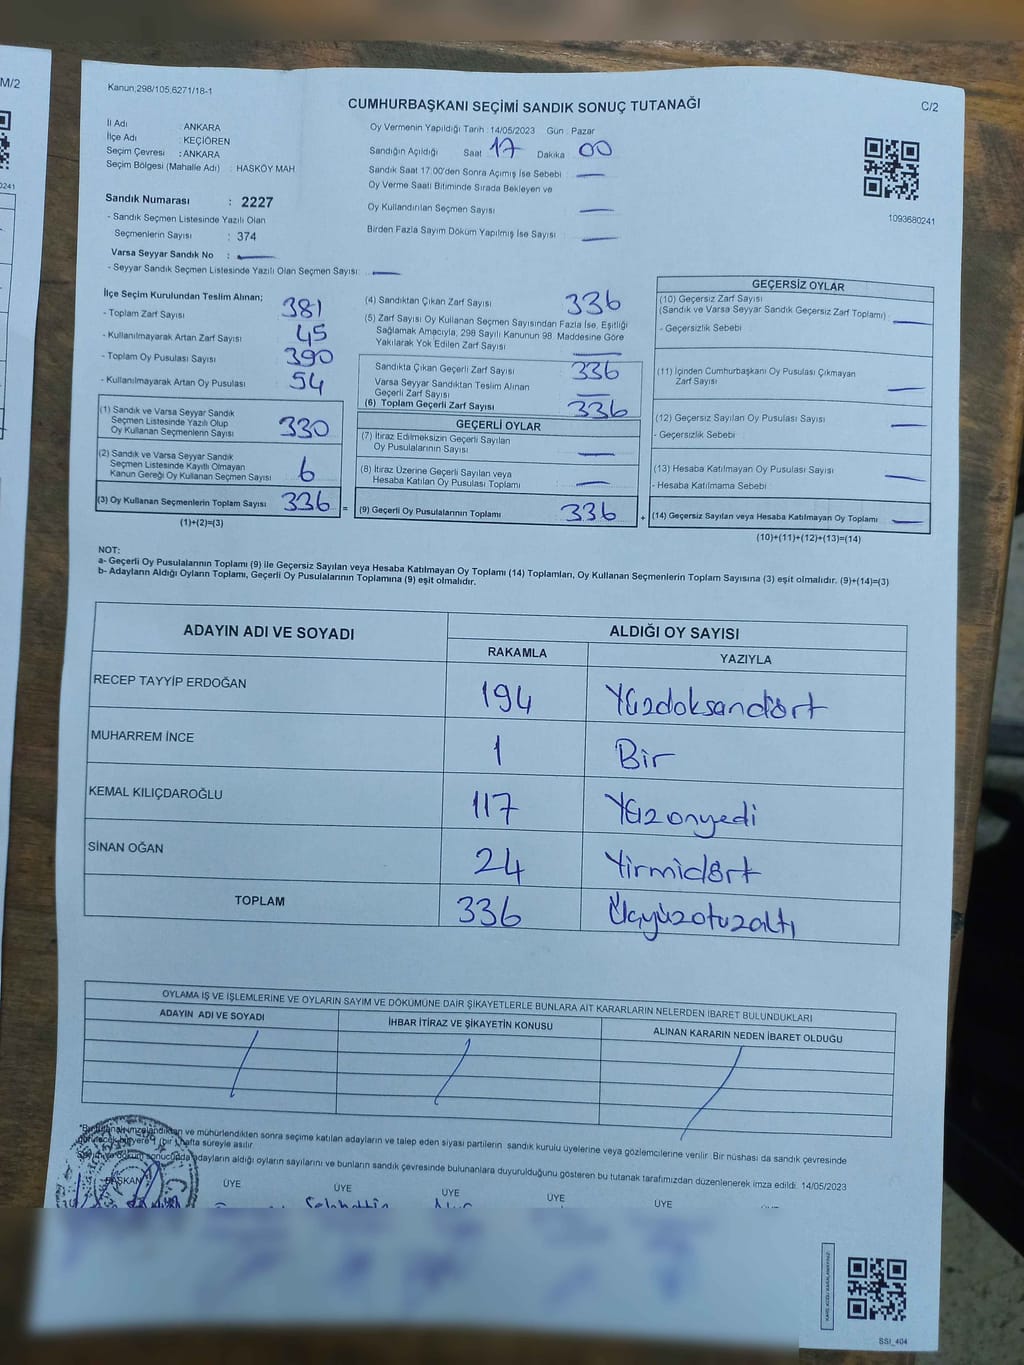 M/2
0241
Kanun;298/105,6271/18-1
CUMHURBAŞKANI SEÇİMİ SANDIK SONUÇ TUTANAĞI
C/2
İl Adı : ANKARA
İlçe Adı : KEÇİÖREN
Seçim Çevresi : ANKARA
Seçim Bölgesi (Mahalle Adı) : HASKÖY MAH
Oy Vermenin Yapıldığı Tarih : 14/05/2023 Gün : Pazar
Sandığın Açıldığı Saat 17 Dakika 00
Sandık Saat 17:00'den Sonra Açılmış İse Sebebi :
Oy Verme Saati Bitiminde Sırada Bekleyen ve
Oy Kullandırılan Seçmen Sayısı :
Birden Fazla Sayım Döküm Yapılmış İse Sayısı :
1093680241
Sandık Numarası : 2227
- Sandık Seçmen Listesinde Yazılı Olan
Seçmenlerin Sayısı : 374
Varsa Seyyar Sandık No :
- Seyyar Sandık Seçmen Listesinde Yazılı Olan Seçmen Sayısı:
İlçe Seçim Kurulundan Teslim Alınan;
- Toplam Zarf Sayısı 381
- Kullanılmayarak Artan Zarf Sayısı 45
- Toplam Oy Pusulası Sayısı 390
- Kullanılmayarak Artan Oy Pusulası 54
(1) Sandık ve Varsa Seyyar Sandık
Seçmen Listesinde Yazılı Olup
Oy Kullanan Seçmenlerin Sayısı 330
(2) Sandık ve Varsa Seyyar Sandık
Seçmen Listesinde Kayıtlı Olmayan
Kanun Gereği Oy Kullanan Seçmen Sayısı 6
(3) Oy Kullanan Seçmenlerin Toplam Sayısı 336 =
(1)+(2)=(3)
(4) Sandıktan Çıkan Zarf Sayısı 336
(5) Zarf Sayısı Oy Kullanan Seçmen Sayısından Fazla İse, Eşitliği
Sağlamak Amacıyla, 298 Sayılı Kanunun 98. Maddesine Göre
Yakılarak Yok Edilen Zarf Sayısı
Sandıkta Çıkan Geçerli Zarf Sayısı 336
Varsa Seyyar Sandıktan Teslim Alınan
Geçerli Zarf Sayısı
(6) Toplam Geçerli Zarf Sayısı 336
GEÇERLİ OYLAR
(7) İtiraz Edilmeksizin Geçerli Sayılan
Oy Pusulalarının Sayısı
(8) İtiraz Üzerine Geçerli Sayılan veya
Hesaba Katılan Oy Pusulası Toplamı
(9) Geçerli Oy Pusulalarının Toplamı 336 +
GEÇERSİZ OYLAR
(10) Geçersiz Zarf Sayısı
(Sandık ve Varsa Seyyar Sandık Geçersiz Zarf Toplamı)
- Geçersizlik Sebebi
(11) İçinden Cumhurbaşkanı Oy Pusulası Çıkmayan
Zarf Sayısı
(12) Geçersiz Sayılan Oy Pusulası Sayısı
- Geçersizlik Sebebi
(13) Hesaba Katılmayan Oy Pusulası Sayısı
- Hesaba Katılmama Sebebi
(14) Geçersiz Sayılan veya Hesaba Katılmayan Oy Toplamı
(10)+(11)+(12)+(13)=(14)
NOT:
a- Geçerli Oy Pusulalarının Toplamı (9) ile Geçersiz Sayılan veya Hesaba Katılmayan Oy Toplamı (14) Toplamları, Oy Kullanan Seçmenlerin Toplam Sayısına (3) eşit olmalıdır. (9)+(14)=(3)
b- Adayların Aldığı Oyların Toplamı, Geçerli Oy Pusulalarının Toplamına (9) eşit olmalıdır.
ADAYIN ADI VE SOYADI
ALDIĞI OY SAYISI
RAKAMLA YAZIYLA
RECEP TAYYİP ERDOĞAN 194 Yüzdoksandört
MUHARREM İNCE 1 Bir
KEMAL KILIÇDAROĞLU 117 Yüzonyedi
SİNAN OĞAN 24 Yirmidört
TOPLAM 336 Üçyüzotuzaltı
OYLAMA İŞ VE İŞLEMLERİNE VE OYLARIN SAYIM VE DÖKÜMÜNE DAİR ŞİKAYETLERLE BUNLARA AİT KARARLARIN NELERDEN İBARET BULUNDUKLARI
ADAYIN ADI VE SOYADI İHBAR İTİRAZ VE ŞİKAYETİN KONUSU ALINAN KARARIN NEDEN İBARET OLDUĞU
ve mühürlendikten sonra seçime katılan adayların ve talep eden siyasi partilerin sandık kurulu üyelerine veya gözlemcilerine verilir. Bir nüshası da sandık çevresinde
(bir) hafta süreyle asılır.
sonucunda adayların aldığı oyların sayılarını ve bunların sandık çevresinde bulunanlara duyurulduğunu gösteren bu tutanak tarafımızdan düzenlenerek imza edildi. 14/05/2023
BAŞKAN ÜYE ÜYE ÜYE ÜYE ÜYE
Selahattin
SSI_404